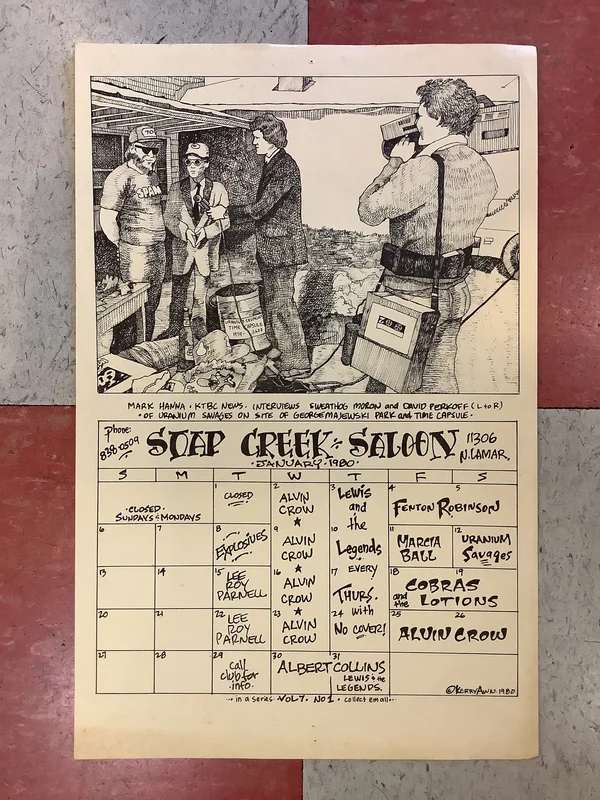 70
SPAM
URANIUM SAVAGES
TIME CAPSULE
MARK HANNA • KTBC NEWS • INTERVIEWS SWEATHOG MORON and DAVID PERKOFF (L to R)
• OF URANIUM SAVAGES ON SITE OF GEORGE MAJEWSKI PARK and TIME CAPSULE •
Phone:
838-0509
SOAP CREEK SALOON
11306
N. LAMAR,
• JANUARY • 1980 •
S M T W T F S
• CLOSED •
SUNDAYS & MONDAYS
1
CLOSED
2
ALVIN
CROW
★
3
LEWIS
and
the
4 5
FENTON ROBINSON
6 7
8
EXPLOSIVES
9
ALVIN
CROW
★
10
Legends
11
MARCIA
BALL
12
URANIUM
Savages
13 14
15
LEE
ROY
PARNELL
16
ALVIN
CROW
★
17 EVERY
THURS.
18 19
COBRAS
and the LOTIONS
20 21
22
LEE
ROY
PARNELL
23
ALVIN
CROW
24 with
No COVER!
25 26
ALVIN CROW
27 28
29
Call
club for
info.
30 31
ALBERT COLLINS
LEWIS & the
LEGENDS.
©KERRY AWN. 1980
in a series VOL 7. NO 1 • collect em all